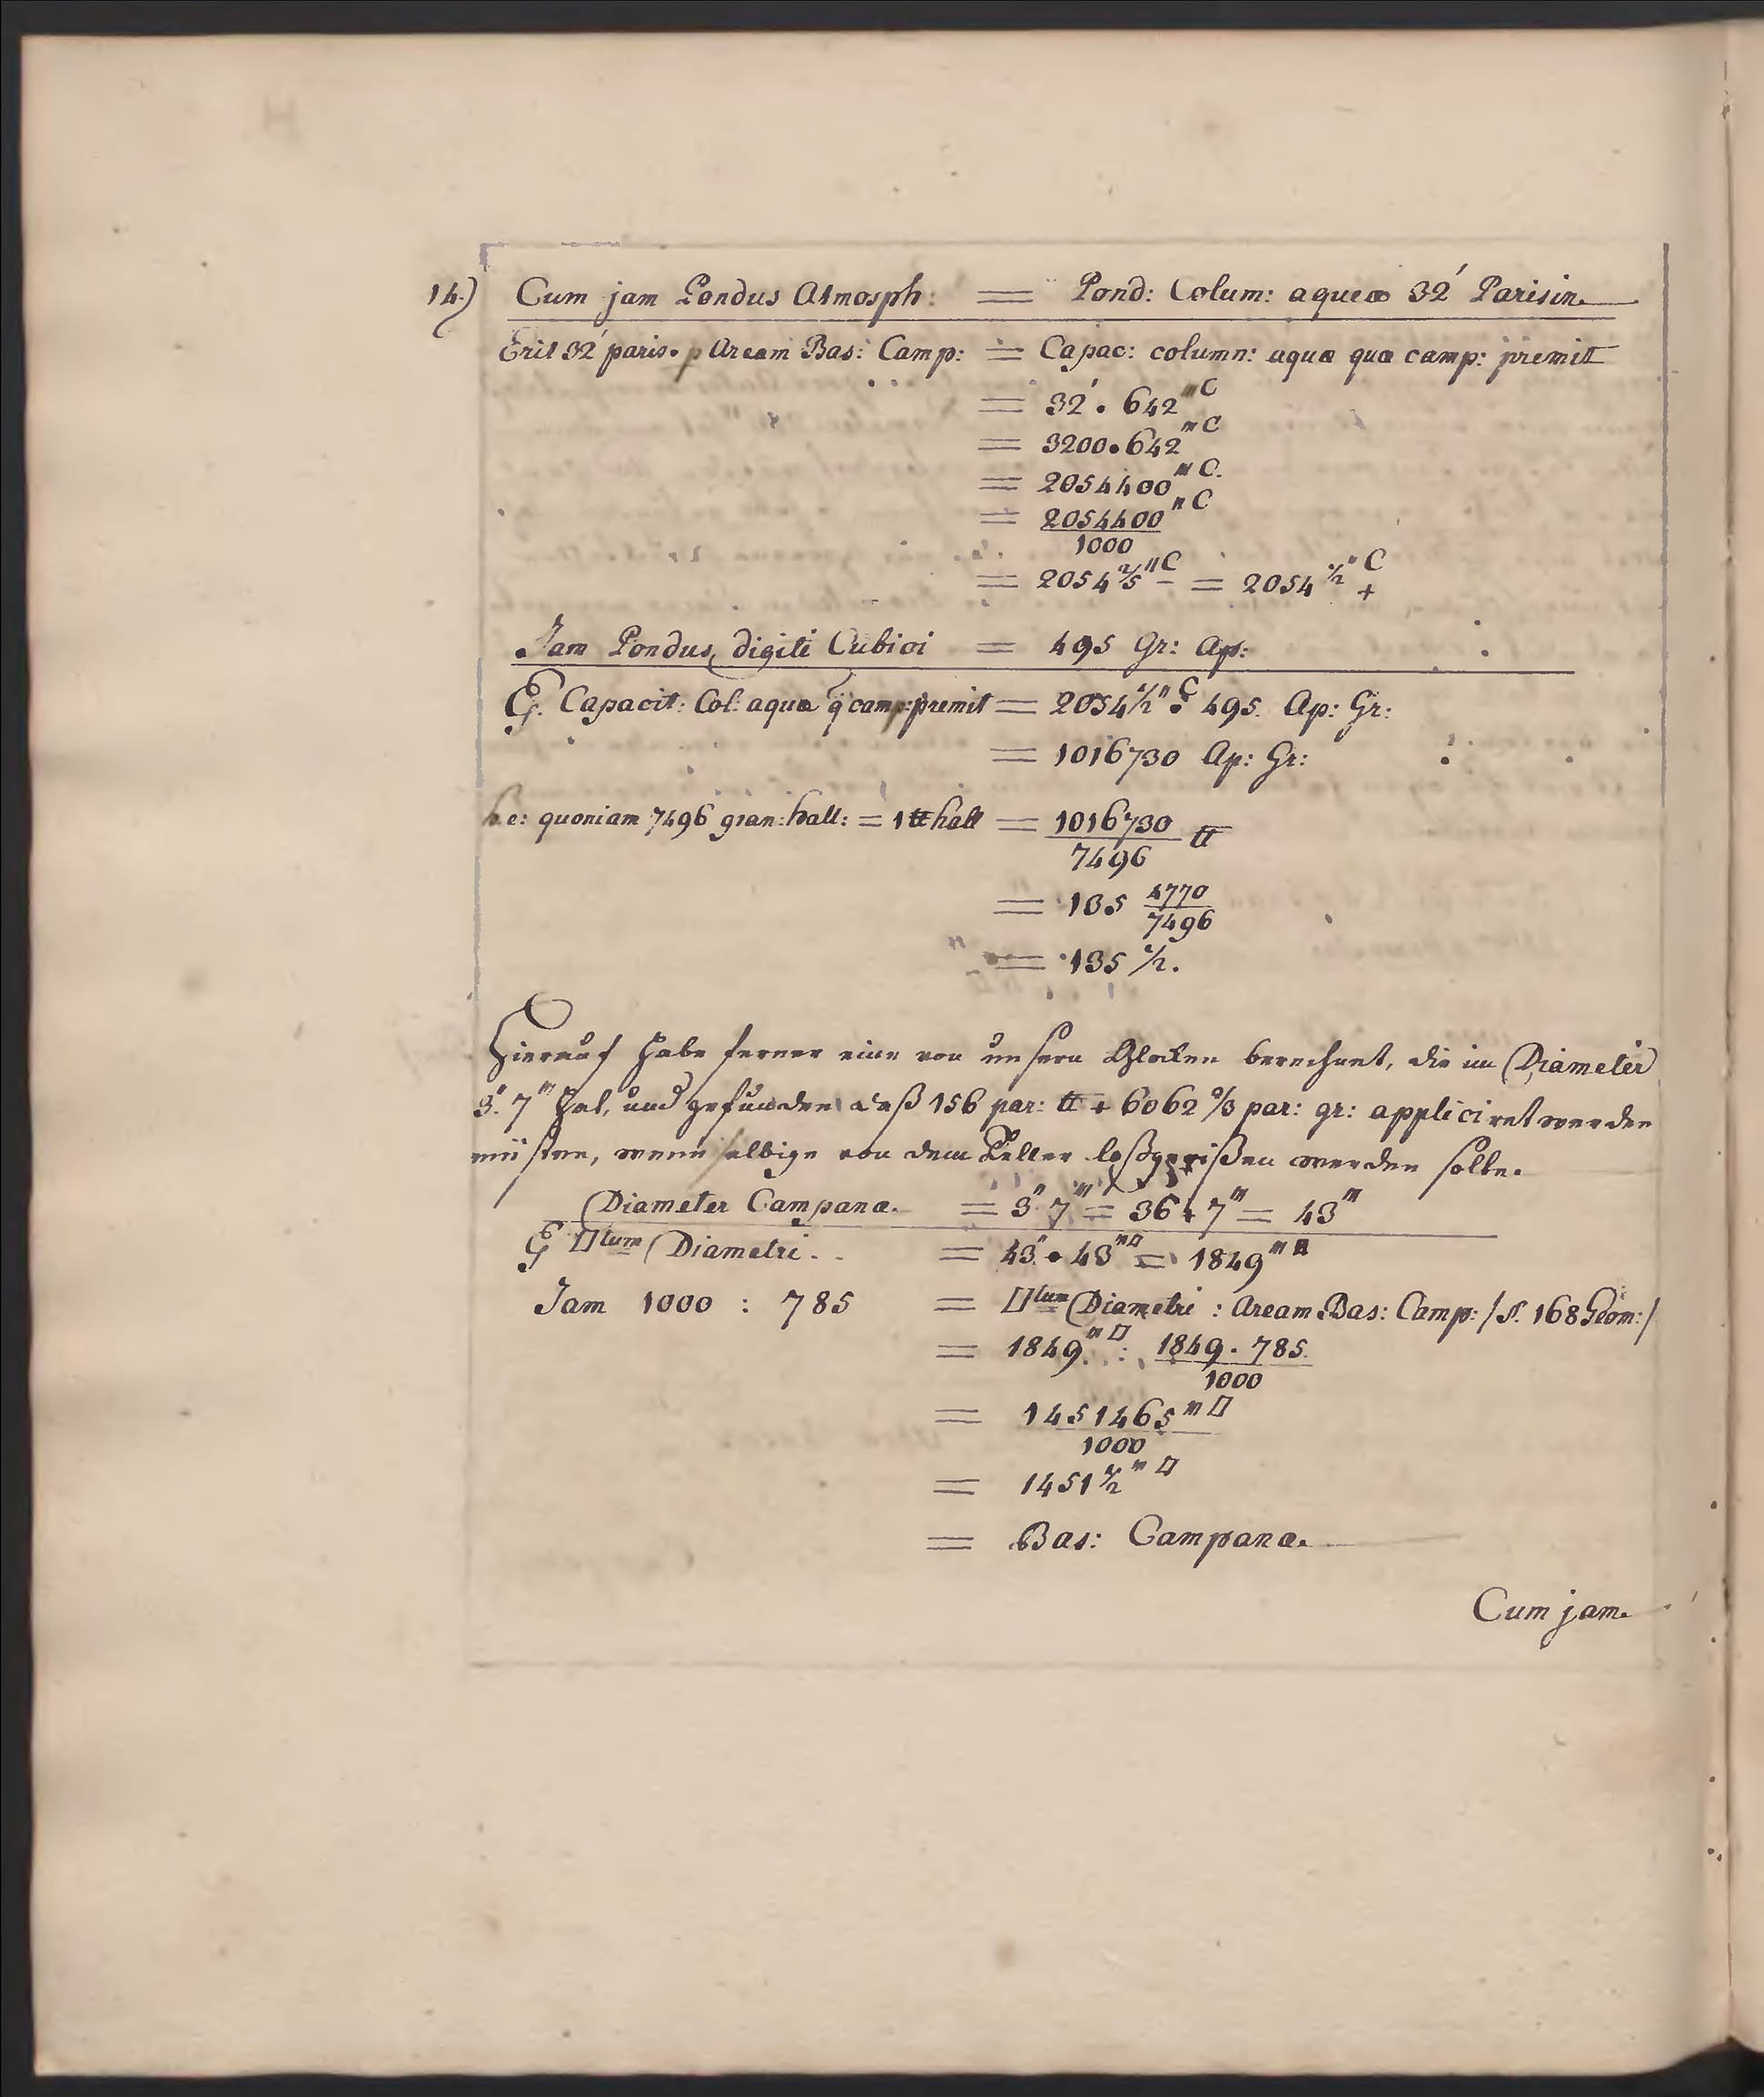 14.) Cum jam Pondus Atmosph: = Pond: Colum: aqueæ 32' Parisin.
Erit 32' paris. p Aream Bas: Camp: = Capac: column: aquæ quæ camp: premit
= 32'. 642'''C
= 3200.642'''C
= 2054400'''C.
= 2054400''C
1000
= 2054 2/5''C - = 2054 1/2''C +
Jam Pondus digiti Cubici = 495 Gr: Ap:
E. Capacit: Col: aquæ q camp: premit = 2054 1/2''C. 495. Ap: Gr:
= 1016730 Ap: Gr:
h.e: quoniam 7496 gran: hall: = 1 ℔ hall = 1016730 ℔
7496
= 135 4770
7496
= 135 1/2.
Hierauf habe ferner eine von unsern Glocken berechnet, die im Diameter
3''. 7''' hat, und gefunden daß 156 par: ℔ + 6062 2/3 par: gr: appliciret werden
müsten, wenn selbige von dem Teller loßgerißen werden solte.
Diameter Campanæ. = 3'' 7''' = 36 + 7''' = 43'''
E □tum Diametri . . = 43 . 43'''□ = 1849'''□
Jam 1000 : 785 = □tum Diametri : Aream Bas: Camp: /S. 168 Geom:/
= 1849'''□ : 1849. 785.
1000
= 1451465'''□
1000
= 1451 1/2'''□
= Bas: Campanæ.
Cum jam.